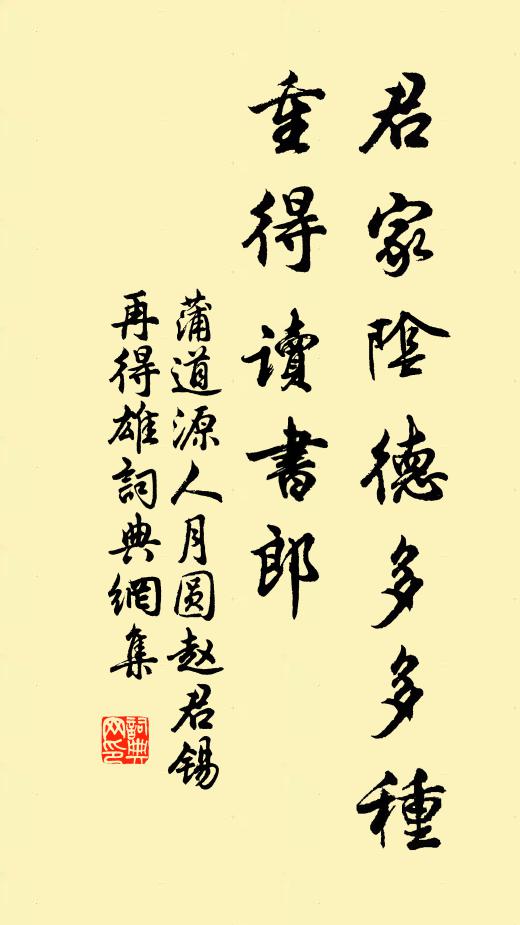 君家陰德多多種
重得讀書郎
蒲道源人月圆赵君锡
再得雄詞典網集
詞典網印